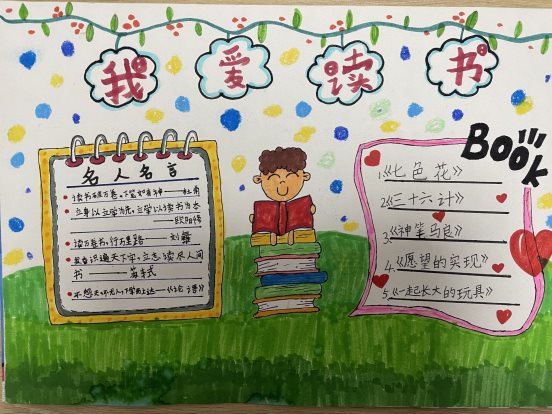 我爱读书
名人名言
读书破万卷,下笔如有神——杜甫
立身以立学为先,立学以读书为本
——欧阳修
读万卷书,行万里路 刘彝
发奋识遍天下字,立志读尽人间
书——苏轼
不怨天,不尤人,下学而上达——《论语》
BOOK
1.《七色花》
2.《三十六计》
3.《神笔马良》
4.《愿望的实现》
5.《一起长大的玩具》